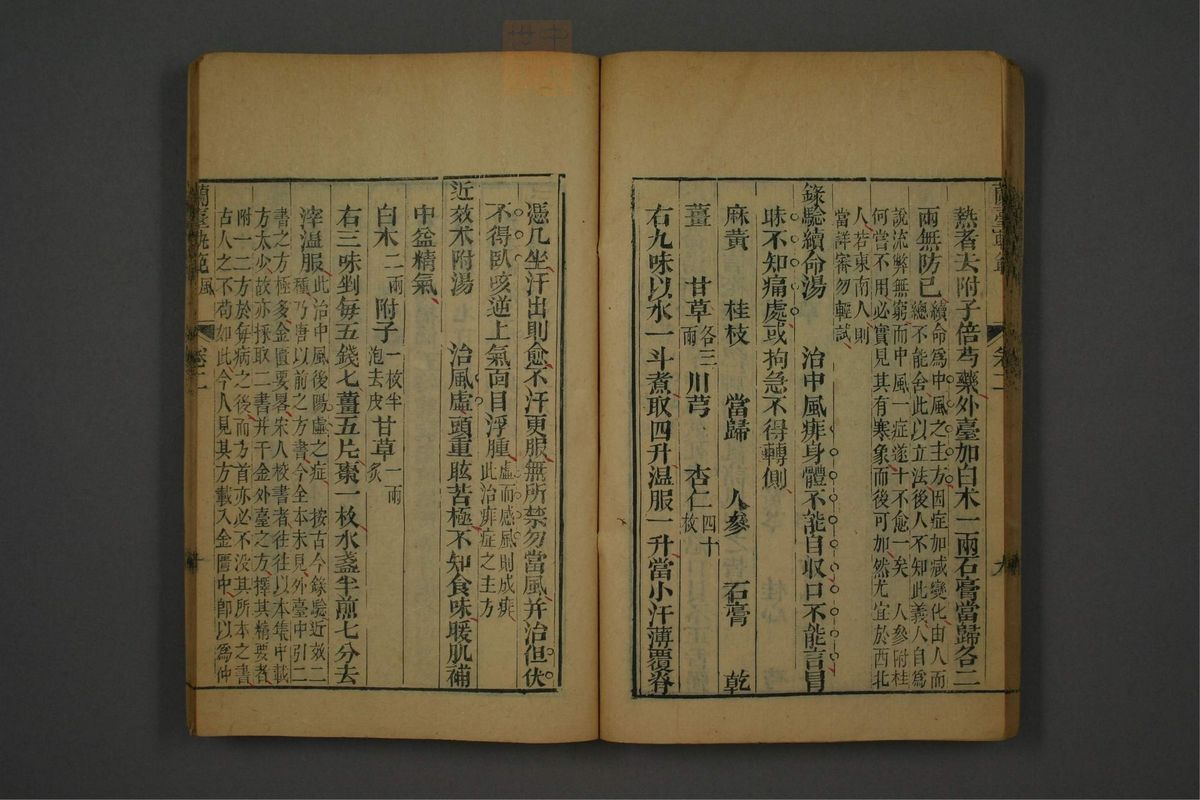 蘭臺軌範 卷二 九
熱者大附子倍芍藥外臺加白术一兩石膏當歸各二
兩無防已續命為中風之主方因症加減變化由人而
總不能舍此以立法後人不知此義人自為
說流弊無窮而中風一症遂十不愈一矣 人參附桂
何嘗不用必實見其有寒象而後可加然尤宜於西北
人若東南人則
當詳審勿輕試
錄驗續命湯 治中風痱身體不能自收口不能言冒
昧不知痛處或拘急不得轉側
麻黃 桂枝 當歸 人參 石膏 乾
薑 甘草各三兩 川芎 杏仁四十枚
右九味以水一斗煮取四升温服一升當小汗薄覆脊
憑几坐汗出則愈不汗更服無所禁勿當風并治但伏
不得臥咳逆上氣面目浮腫虛而感風則成痱
此治痱症之主方
近效术附湯 治風虛頭重眩苦極不知食味暖肌補
中益精氣
白木二兩 附子一枚半炮去皮 甘草一兩炙
右三味剉每五錢七薑五片棗一枚水盞半煎七分去
滓温服此治中風後陽虛之症 按古今錄驗近效二
種乃唐以前之方書今全本未見外臺中引二
書之方極多金匱要畧宋人校書者往往以本集中載
方太少故亦採取二書并千金外臺之方擇其精要者
附一二方於每病之後而乃首亦必不没其所本之書
古人之不苟如此今人見其方載入金匱中卽以為仲
蘭臺軌範 風 卷二 十